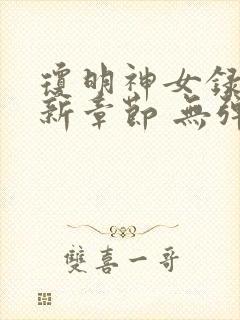 瓊明神女録
新章節 無彈
雙喜一哥